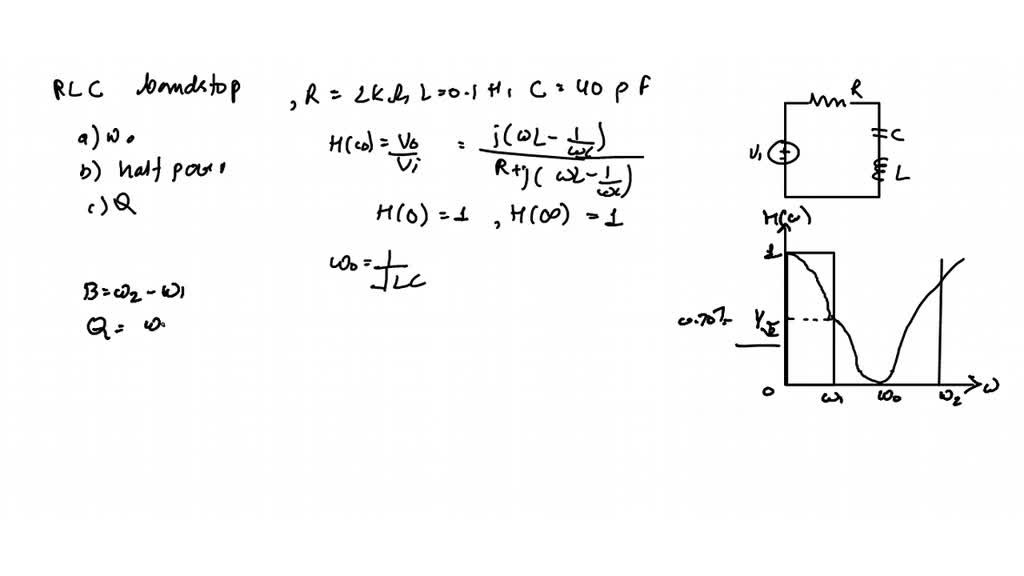 RLC bandstop , R = 2kΩ, L=0.1 H, C = 40 pF
a) ω₀
b) half power
c) Q
H(ω) = V₀/Vᵢ = j(ωL - 1/ωC) / R+j(ωL - 1/ωC)
H(0) = 1 , H(∞) = 1
ω₀ = 1/√LC
B = ω₂ - ω₁
Q = ω₀
R
Vᵢ
C
L
H(ω)
1
0.707 1/√2
0 ω₁ ω₀ ω₂ ω